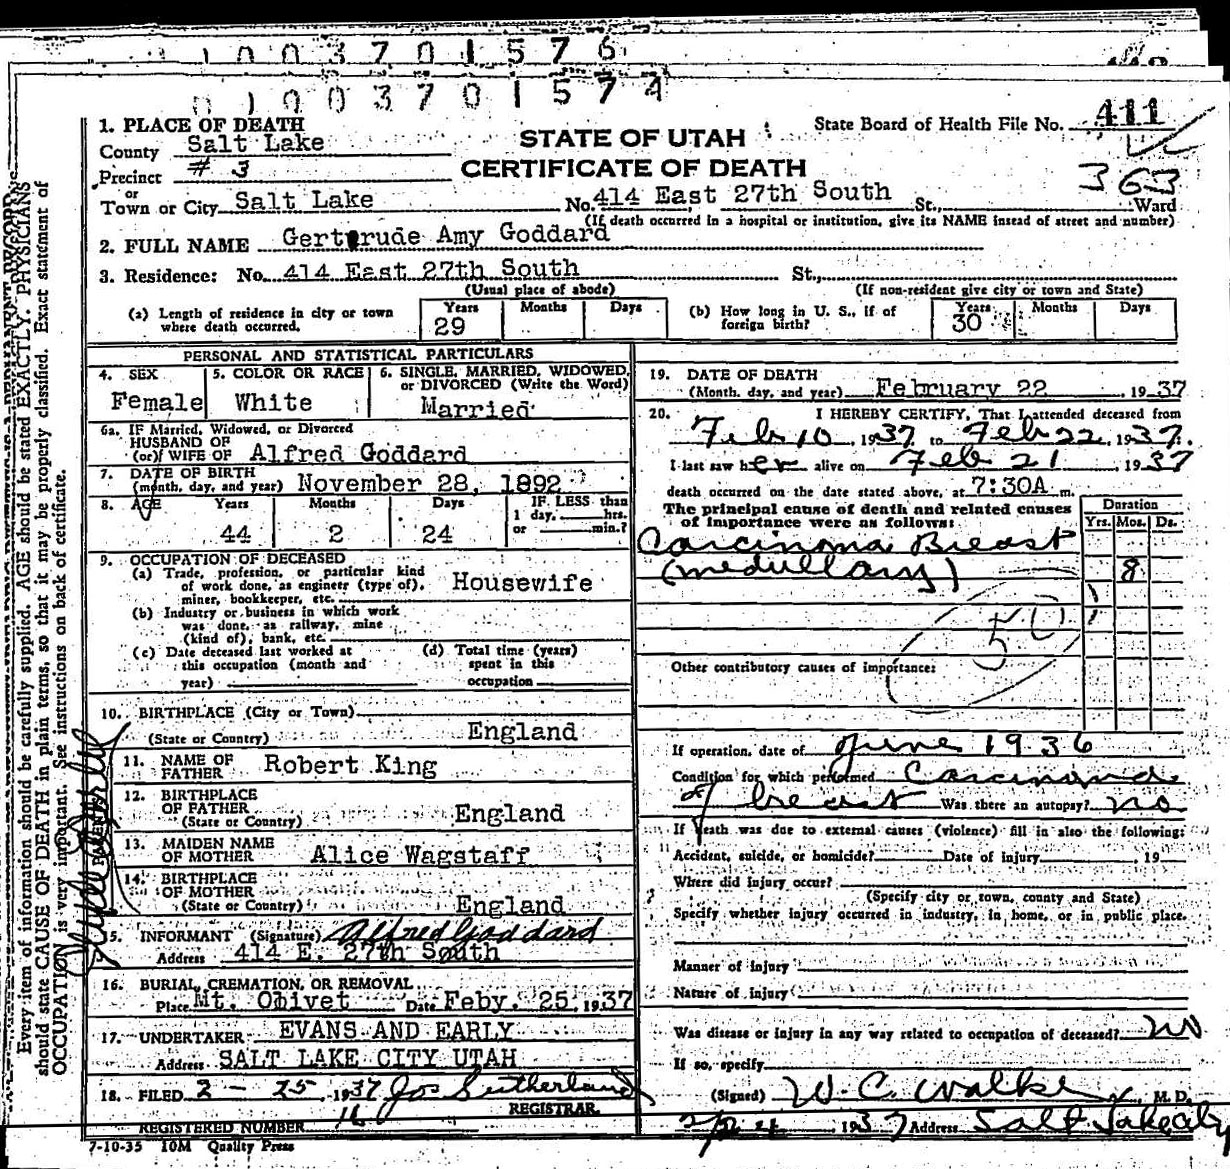 1003701576
01003701574
1. PLACE OF DEATH
County Salt Lake
Precinct # 3
or
Town or City Salt Lake No. 414 East 27th South St., Ward
(If death occurred in a hospital or institution, give its NAME insead of street and number)
STATE OF UTAH
CERTIFICATE OF DEATH
State Board of Health File No. 411
363
2. FULL NAME Gertrude Amy Goddard
3. Residence: No. 414 East 27th South St.,
(Usual place of abode) (If non-resident give city or town and State)
(a) Length of residence in city or town where death occurred. Years 29 Months Days
(b) How long in U. S., if of foreign birth? Years 30 Months Days
PERSONAL AND STATISTICAL PARTICULARS
4. SEX Female
5. COLOR OR RACE White
6. SINGLE, MARRIED, WIDOWED, or DIVORCED (Write the Word) Married
6a. IF Married, Widowed, or Divorced
HUSBAND OF
(or) WIFE OF Alfred Goddard
7. DATE OF BIRTH
(month, day, and year) November 28, 1892
8. AGE Years 44 Months 2 Days 24
IF LESS than
1 day, hrs.
or min.?
9. OCCUPATION OF DECEASED
(a) Trade, profession, or particular kind
of work done, as engineer (type of),
miner, bookkeeper, etc. Housewife
(b) Industry or business in which work
was done, as railway, mine
(kind of), bank, etc.
(c) Date deceased last worked at
this occupation (month and
year)
(d) Total time (years)
spent in this
occupation
10. BIRTHPLACE (City or Town)
(State or Country) England
11. NAME OF
FATHER Robert King
12. BIRTHPLACE
OF FATHER
(State or Country) England
13. MAIDEN NAME
OF MOTHER Alice Wagstaff
14. BIRTHPLACE
OF MOTHER
(State or Country) England
15. INFORMANT (Signature) Alfred Goddard
Address 414 E. 27th South
16. BURIAL, CREMATION, OR REMOVAL
Place Mt. Olivet Date Feby. 25, 1937
17. UNDERTAKER EVANS AND EARLY
Address SALT LAKE CITY UTAH
18. FILED 2 - 25, 1937 Jos Sutherland
REGISTRAR.
REGISTERED NUMBER 16
7-10-35 10M Quality Press
19. DATE OF DEATH
(Month, day, and year) February 22 1937
20. I HEREBY CERTIFY, That I attended deceased from
Feb 10, 1937 to Feb 22, 1937.
I last saw her alive on Feb 21 1937
death occurred on the date stated above, at 7:30A m.
The principal cause of death and related causes
of importance were as follows:
Duration
Yrs. Mos. Ds.
Carcinoma Breast
(medullary) 8
50
Other contributory causes of importance:
If operation, date of June 1936
Condition for which performed Carcinoma
of breast Was there an autopsy? no
If death was due to external causes (violence) fill in also the following:
Accident, suicide, or homicide? Date of injury 19
Where did injury occur?
(Specify city or town, county and State)
Specify whether injury occurred in industry, in home, or in public place.
Manner of injury
Nature of injury
Was disease or injury in any way related to occupation of deceased? no
If so, specify
(Signed) W. C. Walker, M. D.
1937 Address Salt Lake City
Every item of information should be carefully supplied. AGE should be stated EXACTLY. PHYSICIANS
should state CAUSE OF DEATH in plain terms, so that it may be properly classified. Exact statement of
OCCUPATION is very important. See instructions on back of certificate.